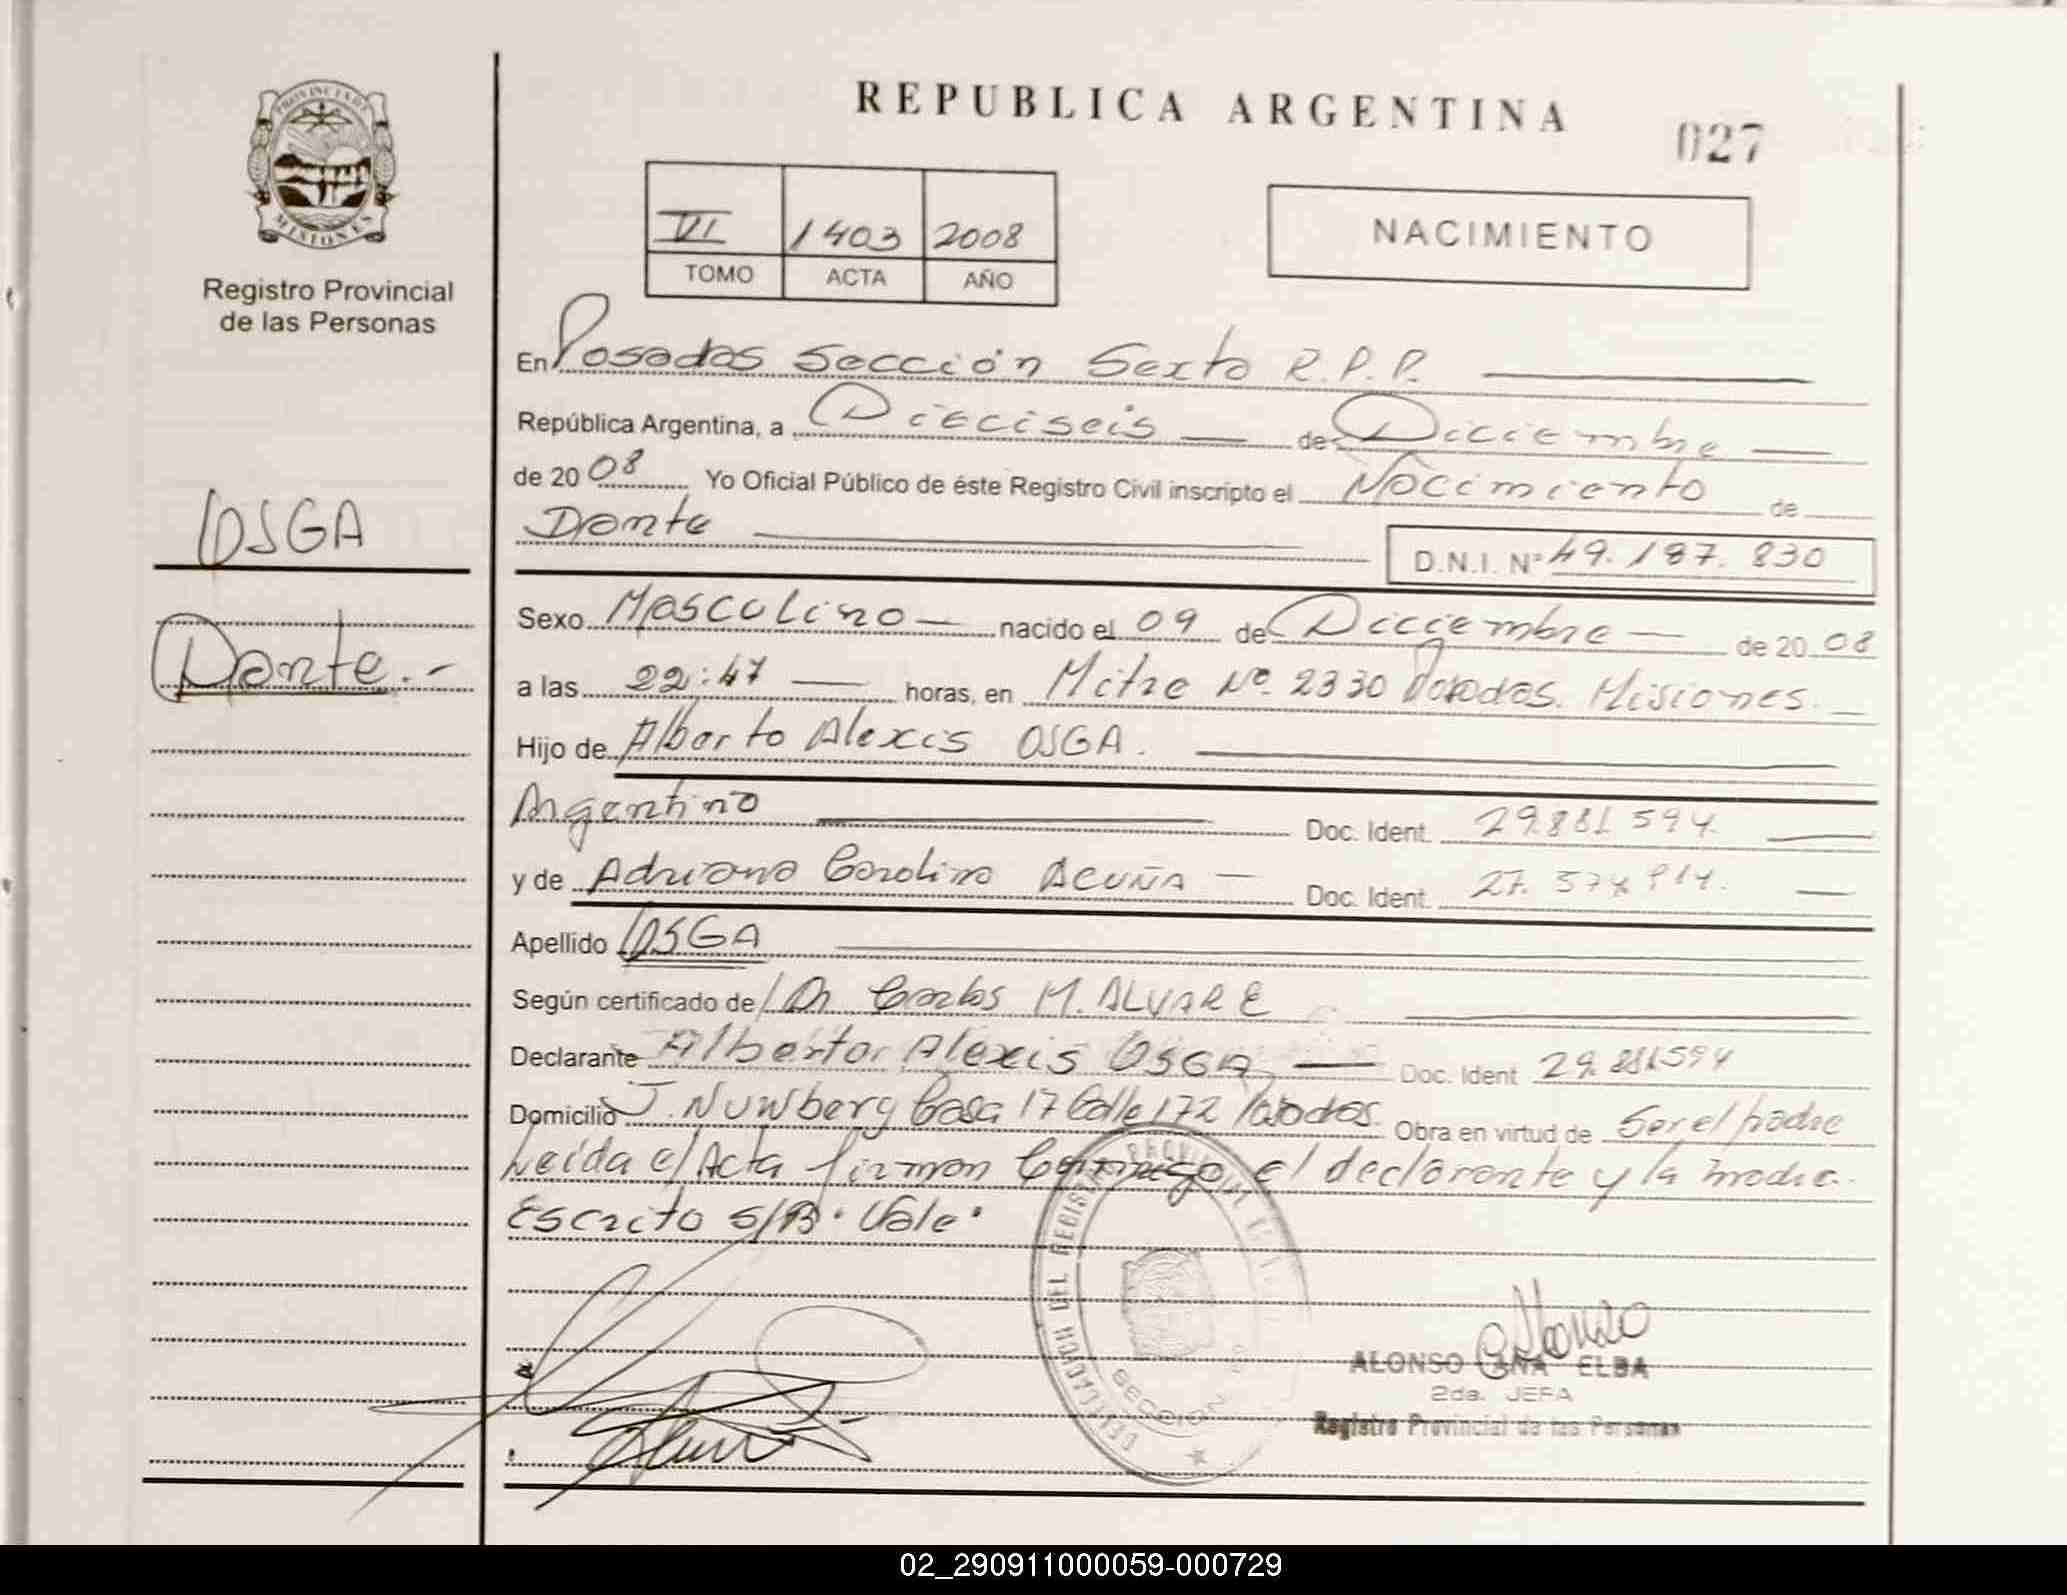 REPUBLICA ARGENTINA
027
PROVINCIA DE
MISIONES
Registro Provincial
de las Personas
VI 1403 2008
TOMO ACTA AÑO
NACIMIENTO
En Posadas Sección Sexta R.P.P.
República Argentina, a Dieciseis de Diciembre
de 20 08 Yo Oficial Público de éste Registro Civil inscripto el Nacimiento de
Dante
D.N.I. Nº 49.187.830
OSGA
Dante.-
Sexo Masculino nacido el 09 de Diciembre de 20 08
a las 22:47 horas, en Mitre Nº 2330 Posadas. Misiones.
Hijo de Alberto Alexis OSGA.
Argentino Doc. Ident. 29.881.594.
y de Adriana Carolina ACUÑA Doc. Ident. 27.574.914.
Apellido OSGA
Según certificado de Dr. Carlos M. ALVARE
Declarante Alberto Alexis OSGA Doc. Ident 29.881.594
Domicilio J. Nuwbery Casa 17 Calle 172 Posadas. Obra en virtud de Ser el padre
Leída el Acta firman Conmigo el declarante y la madre.
Escrito S/B "Vale"
DEL REGISTRO PROVINCIAL DE
SECCION
Alonso
ALONSO ANA ELBA
2da. JEFA
Registro Provincial de las Personas
02_290911000059-000729